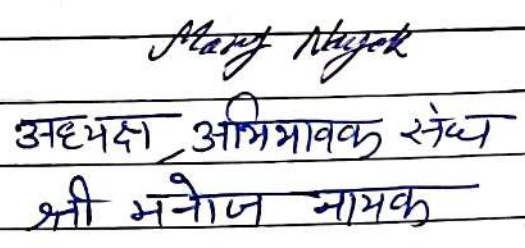 Manoj Nayak
अध्यक्ष, अभिभावक संघ
श्री मनोज नायक